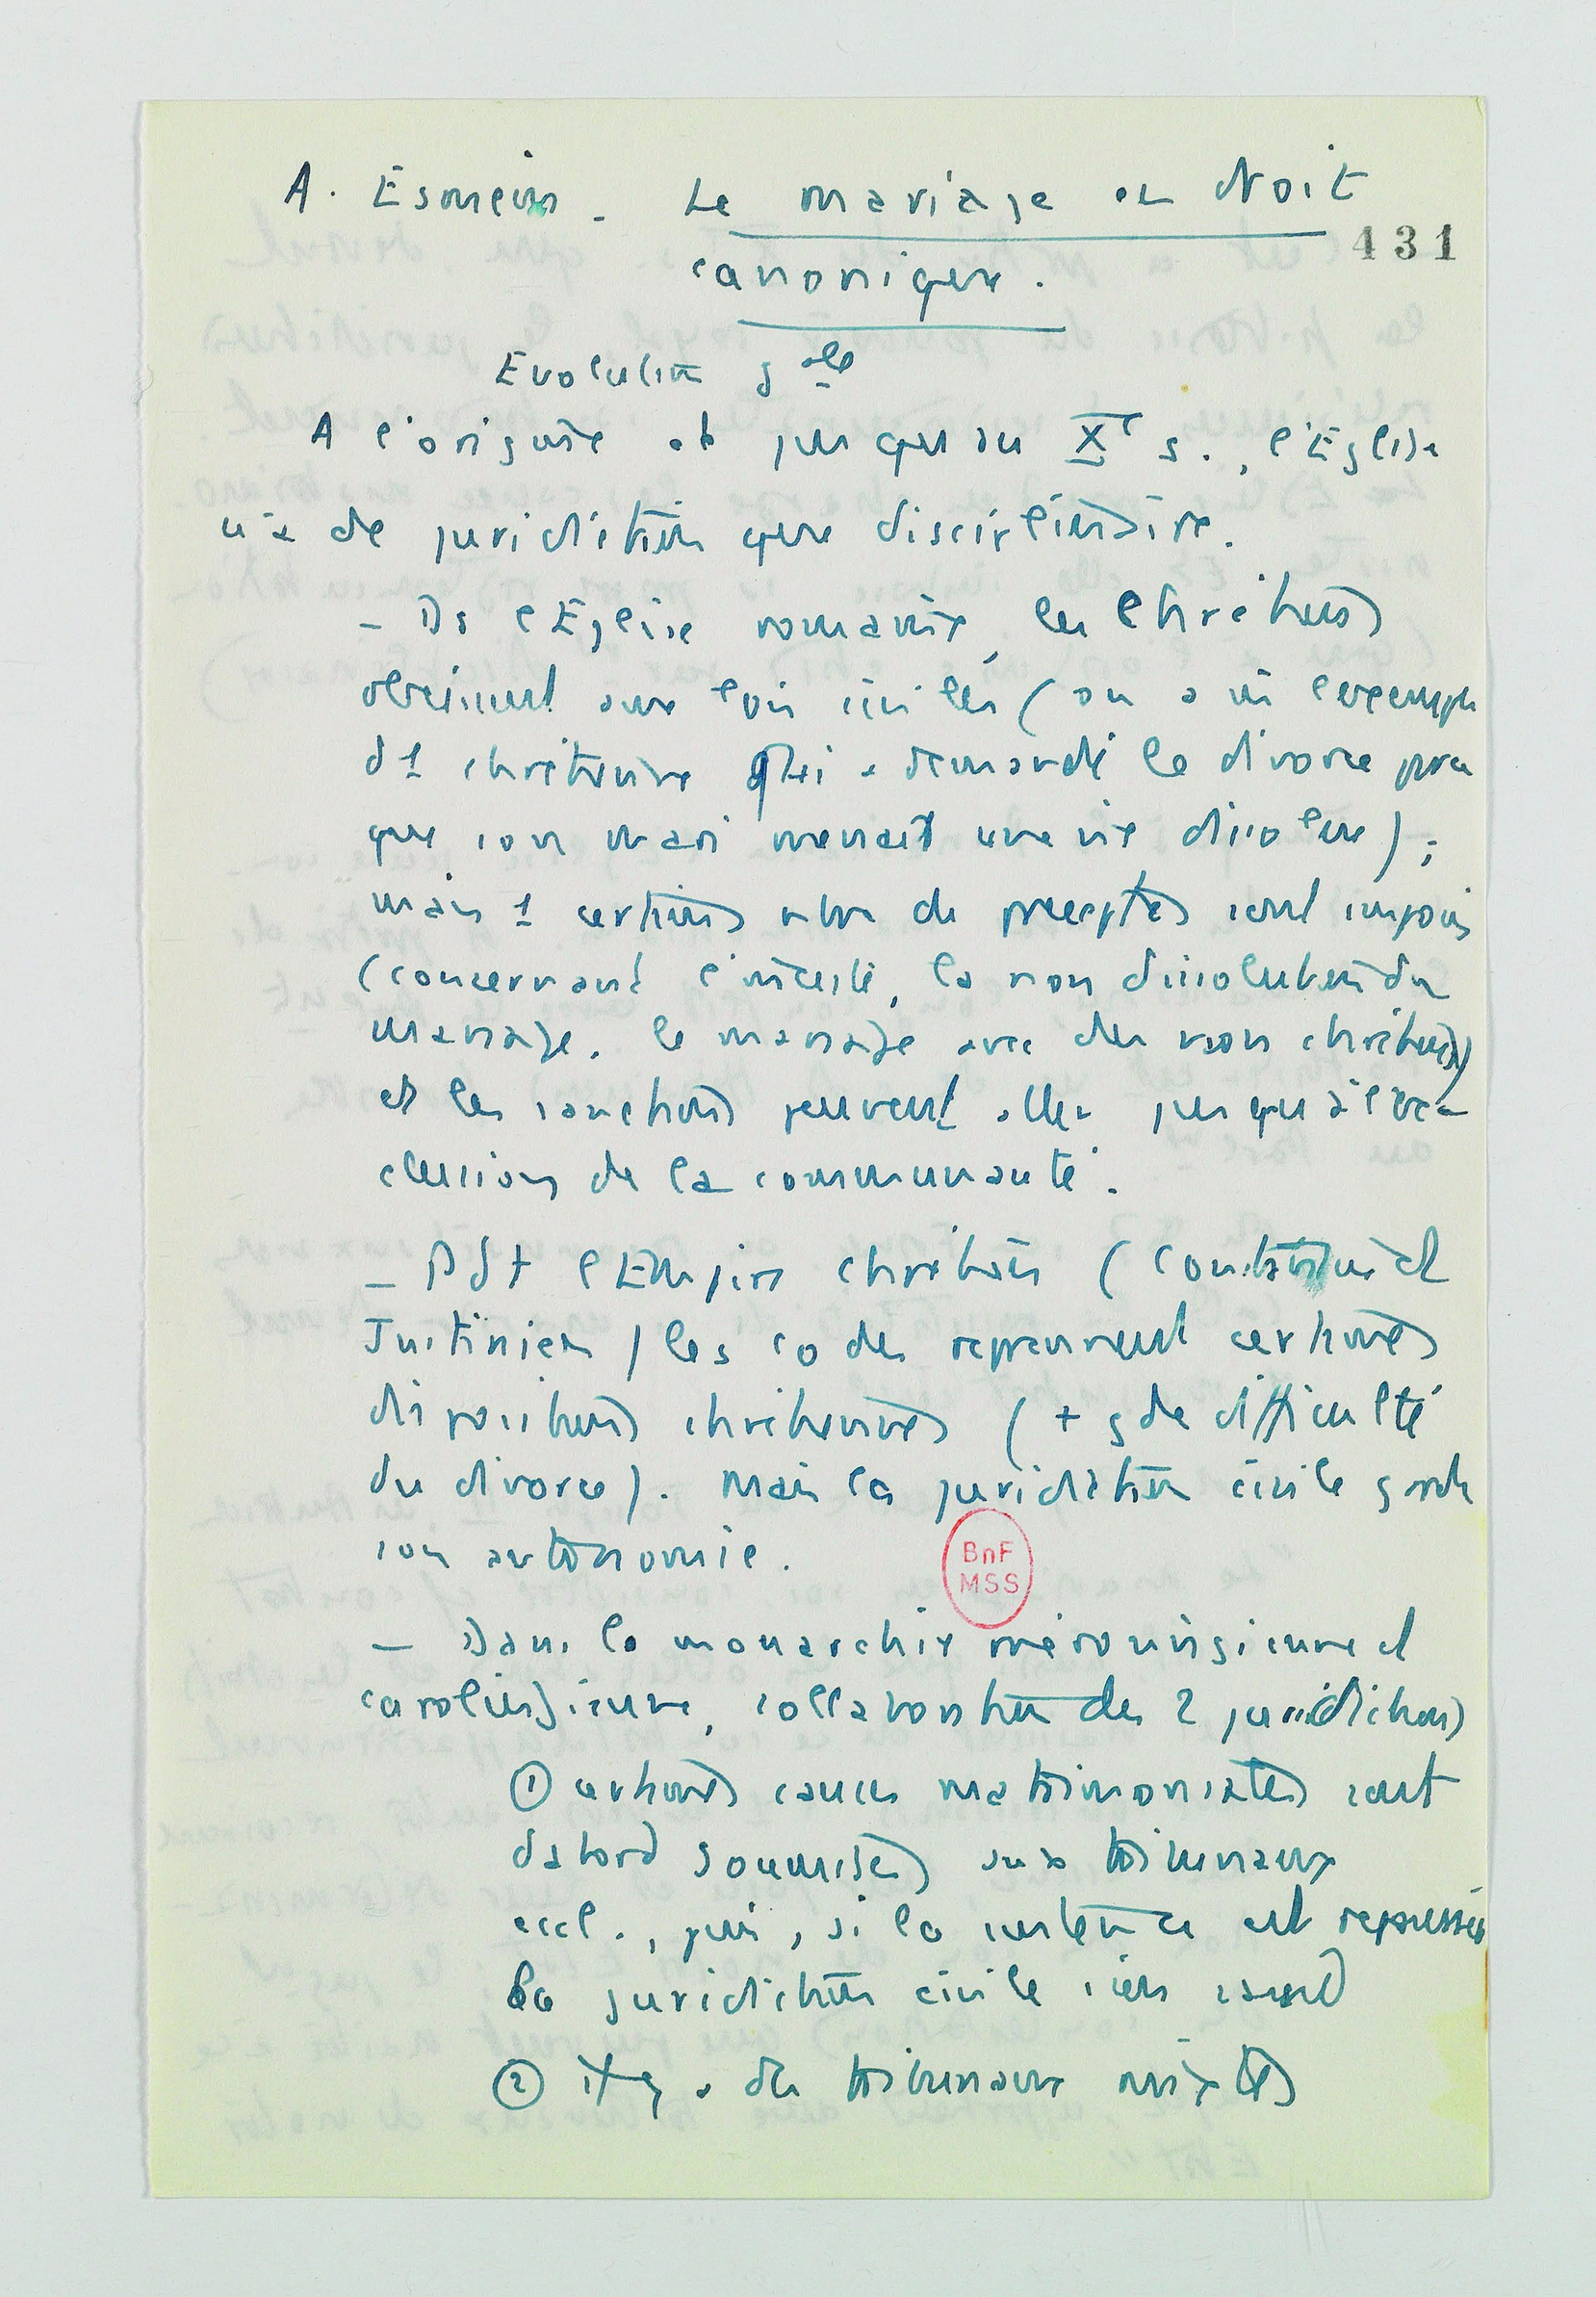 A. Esmein. Le mariage en droit
431
canonique.
Evolution gale
A l'origine et jusqu'au Xe s., l'Eglise
n'a de juridiction que disciplinaire.
– Ds l'Eglise romaine, les chrétiens
obeissent aux lois civiles (on a vu l'exemple
d'1 chretienne qui a demandé le divorce parce
que son mari menait une vie dissolue) ;
mais 1 certains nbre de preceptes sont imposés
(concernant l'inceste, la non dissolution du
mariage, le mariage avec des non chrétiens)
et les sanctions peuvent aller jusqu'à l'ex-
clusion de la communauté.
– Pdt l'Empire chretien (Constantin et
Justinien) les codes reprennent certaines
dispositions chretiennes (+ gde difficulté
du divorce). Mais la juridiction civile garde
son autonomie.
BnF
MSS
– Dans la monarchie mérovingienne et
carolingienne, collaboration des 2 juridictions
① certaines causes matrimoniales sont
d'abord soumises aux tribunaux
eccl., puis, si la sentence est
la juridiction civile s'en
② il y a des tribunaux mixtes